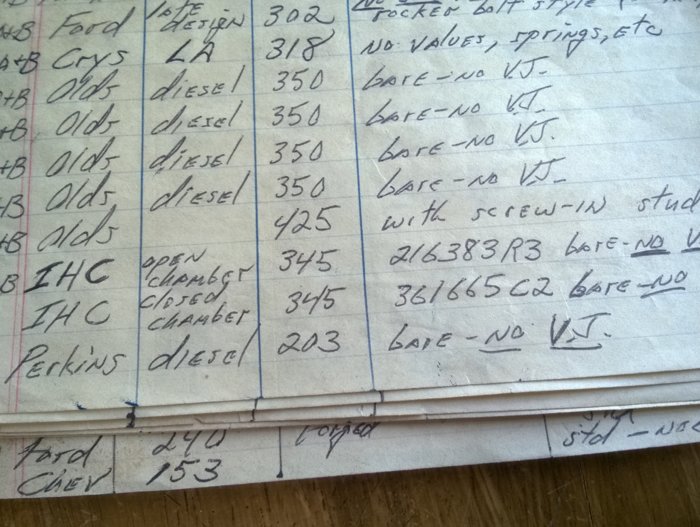 A+B Ford late design 302 rocker bolt style
A+B Crys LA 318 no values, springs, etc
+B Olds diesel 350 bare-no V.J.
+B Olds diesel 350 bare-no V.J.
+B Olds diesel 350 bare-no V.J.
+B Olds diesel 350 bare-no V.J.
+B Olds 425 with screw-in stud
B IHC open chamber 345 216383R3 bare-no V
IHC closed chamber 345 361665C2 bare-no
Perkins diesel 203 bare-no V.J.
Ford 240 forged std-
Chev 153